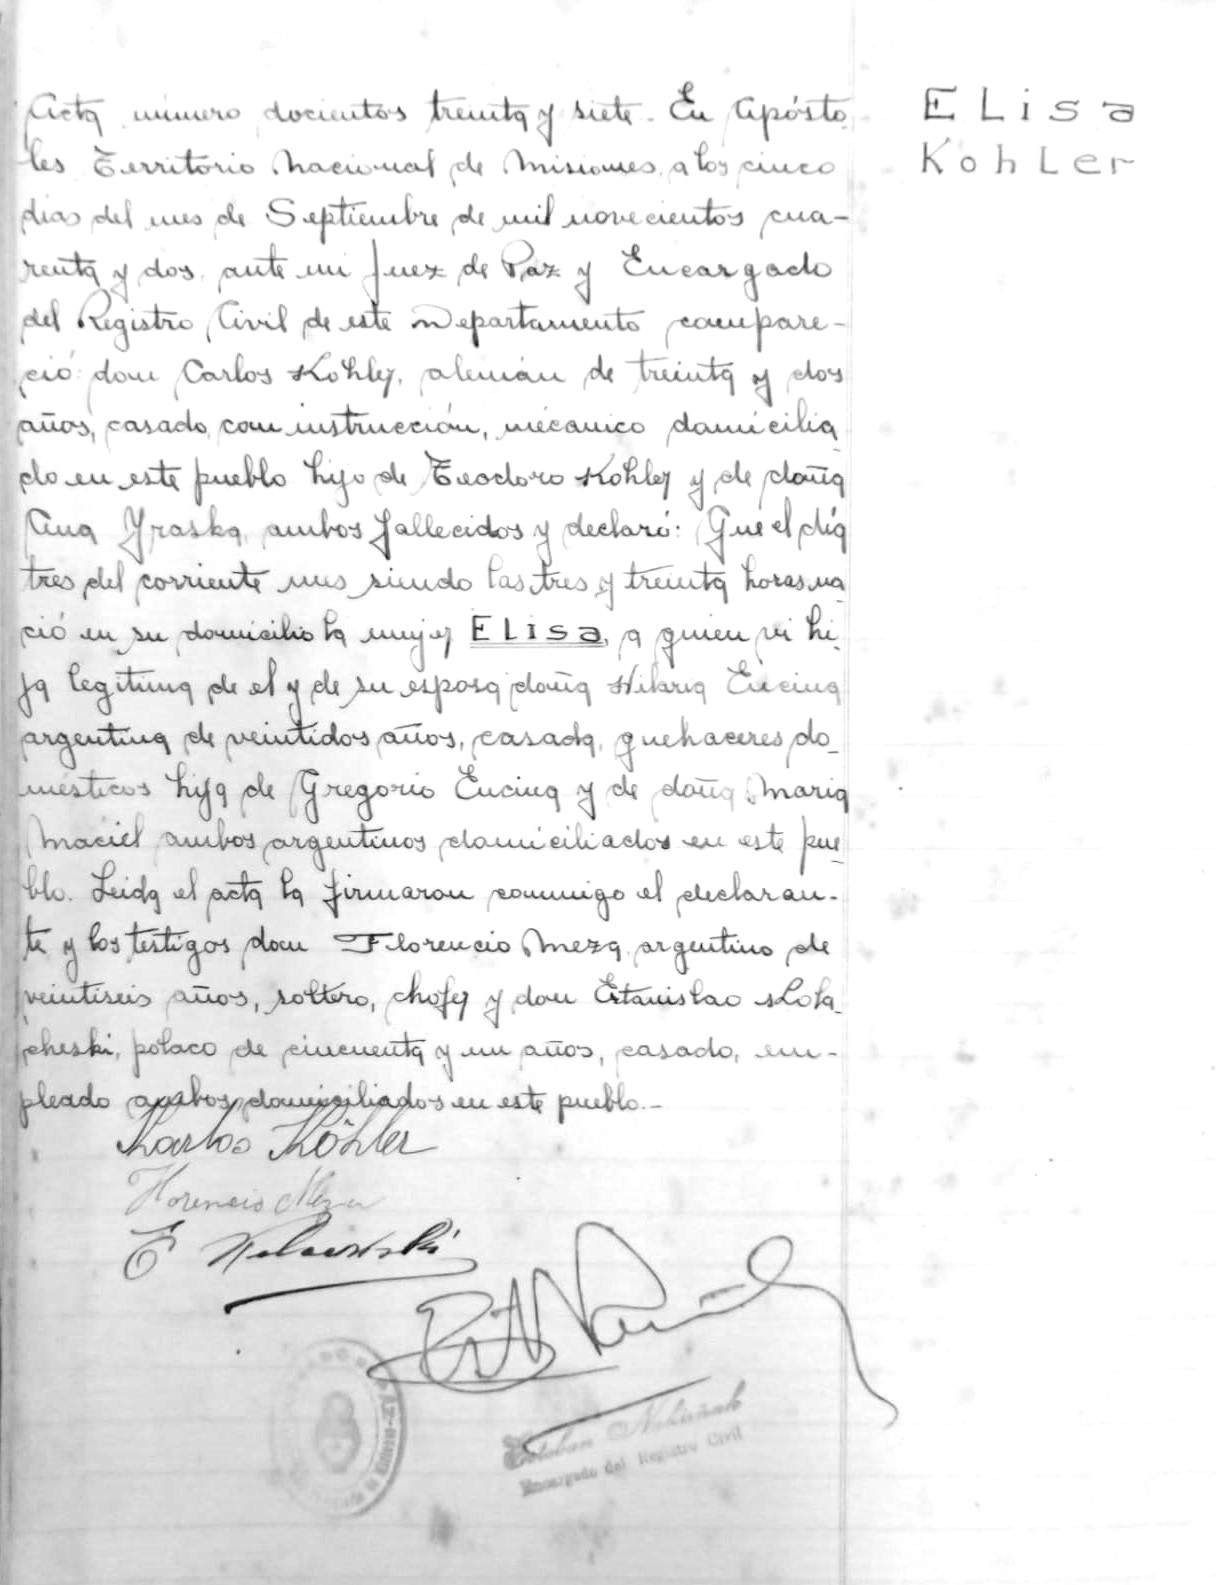 Elisa
Kohler
Acta número docientos treinta y siete. En Apósto
les Territorio Nacional de Misiones, a los cinco
dias del mes de Septiembre de mil novecientos cua-
renta y dos, ante mi Juez de Paz y Encargado
del Registro Civil de este Departamento compare-
ció don Carlos Kohler, alemán de treinta y dos
años, casado, con instrucción, mécanico domicilia
do en este pueblo hijo de Teodoro Kohler y de doña
Ana Yraska, ambos fallecidos y declaró: Que el día
tres del corriente mes siendo las tres y treinta horas na
ció en su domicilio la mujer Elisa, a quien vi hi-
ja legitima de el y de su esposa doña Hilaria Encina
argentina de veintidos años, casada, quehaceres do
mésticos hija de Gregorio Encina y de doña Maria
Maciel ambos argentinos domiciliados en este pue
blo. Leida el acta la firmaron conmigo el declaran-
te y los testigos don Florencio Meza, argentino de
veintiseis años, soltero, chofer y don Estanislao Kola
cheski, polaco de cincuenta y un años, casado, em-
pleado ambos domiciliados en este pueblo.-
Karlos Köhler
Florencio Meza
E
Esteban
Encargado del Registro Civil